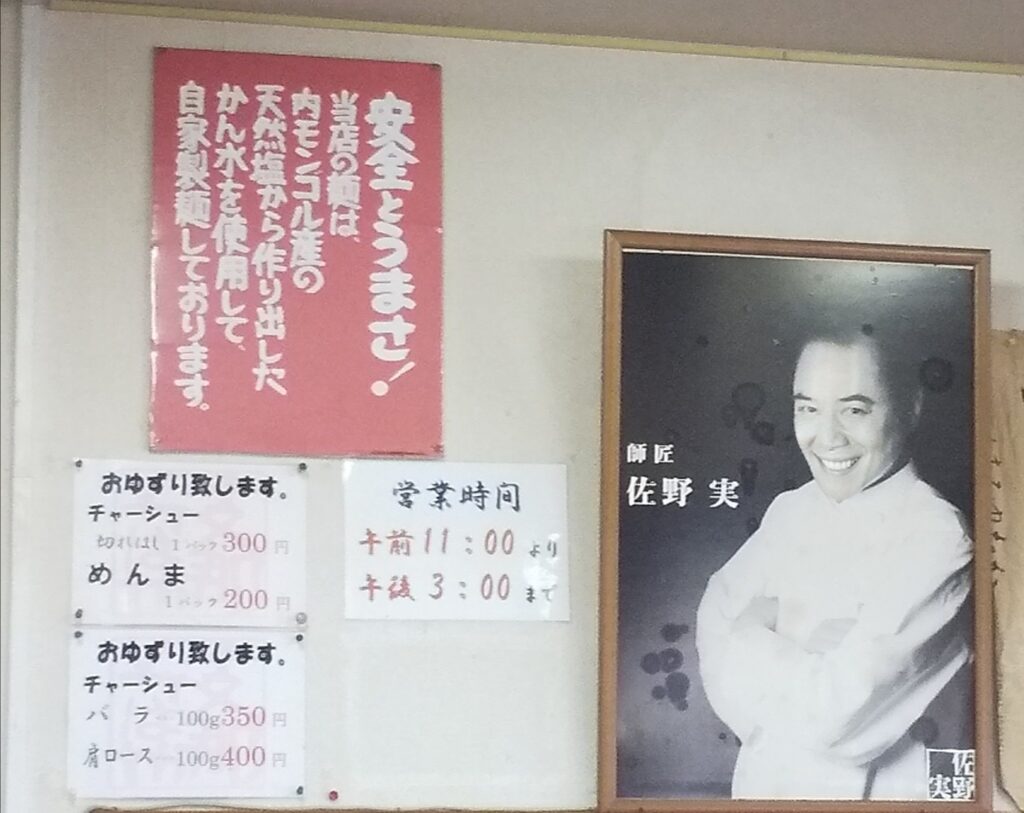 安全とうまさ!
当店の麺は、
内モンゴル産の
天然塩から作り出した
かん水を使用して、
自家製麺しております。
おゆずり致します。
チャーシュー
切れはし 1パック300円
めんま
1パック200円
おゆずり致します。
チャーシュー
バラ…100g350円
肩ロース…100g400円
営業時間
午前11:00より
午後3:00まで
師匠
佐野 実
佐野
実